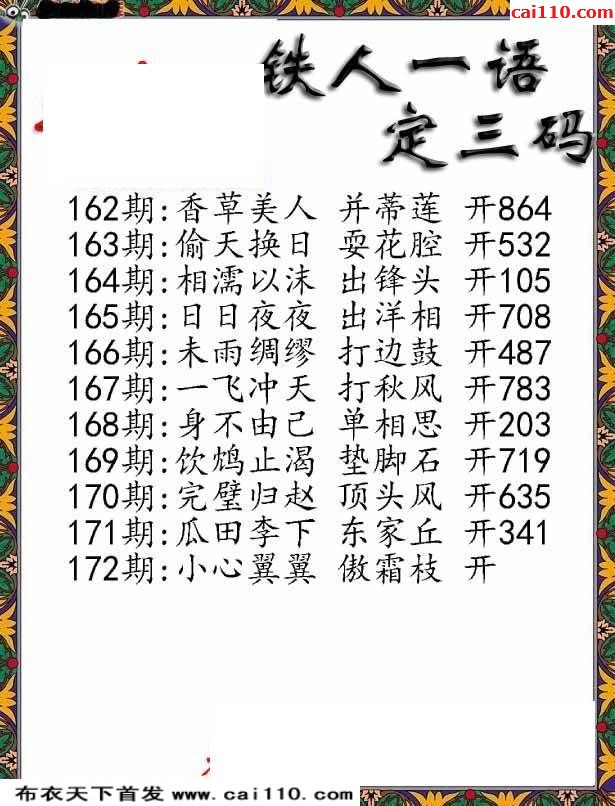 cai110.com
铁人一语
定三码
162期:香草美人 并蒂莲 开864
163期:偷天换日 耍花腔 开532
164期:相濡以沫 出锋头 开105
165期:日日夜夜 出洋相 开708
166期:未雨绸缪 打边鼓 开487
167期:一飞冲天 打秋风 开783
168期:身不由己 单相思 开203
169期:饮鸩止渴 垫脚石 开719
170期:完璧归赵 顶头风 开635
171期:瓜田李下 东家丘 开341
172期:小心翼翼 傲霜枝 开
布衣天下首发 www.cai110.com